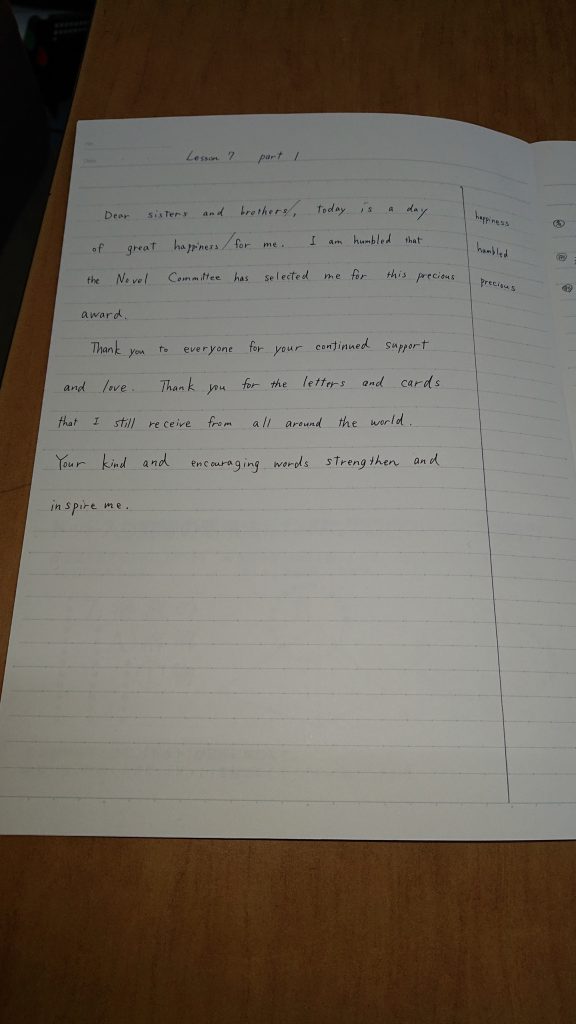 Lesson 7 part 1
Dear sisters and brothers/, today is a day
of great happiness/for me. I am humbled that
the Novel Committee has selected me for this precious
award.
Thank you to everyone for your continued support
and love. Thank you for the letters and cards
that I still receive from all around the world.
Your kind and encouraging words strengthen and
inspire me.
happiness
humbled
precious